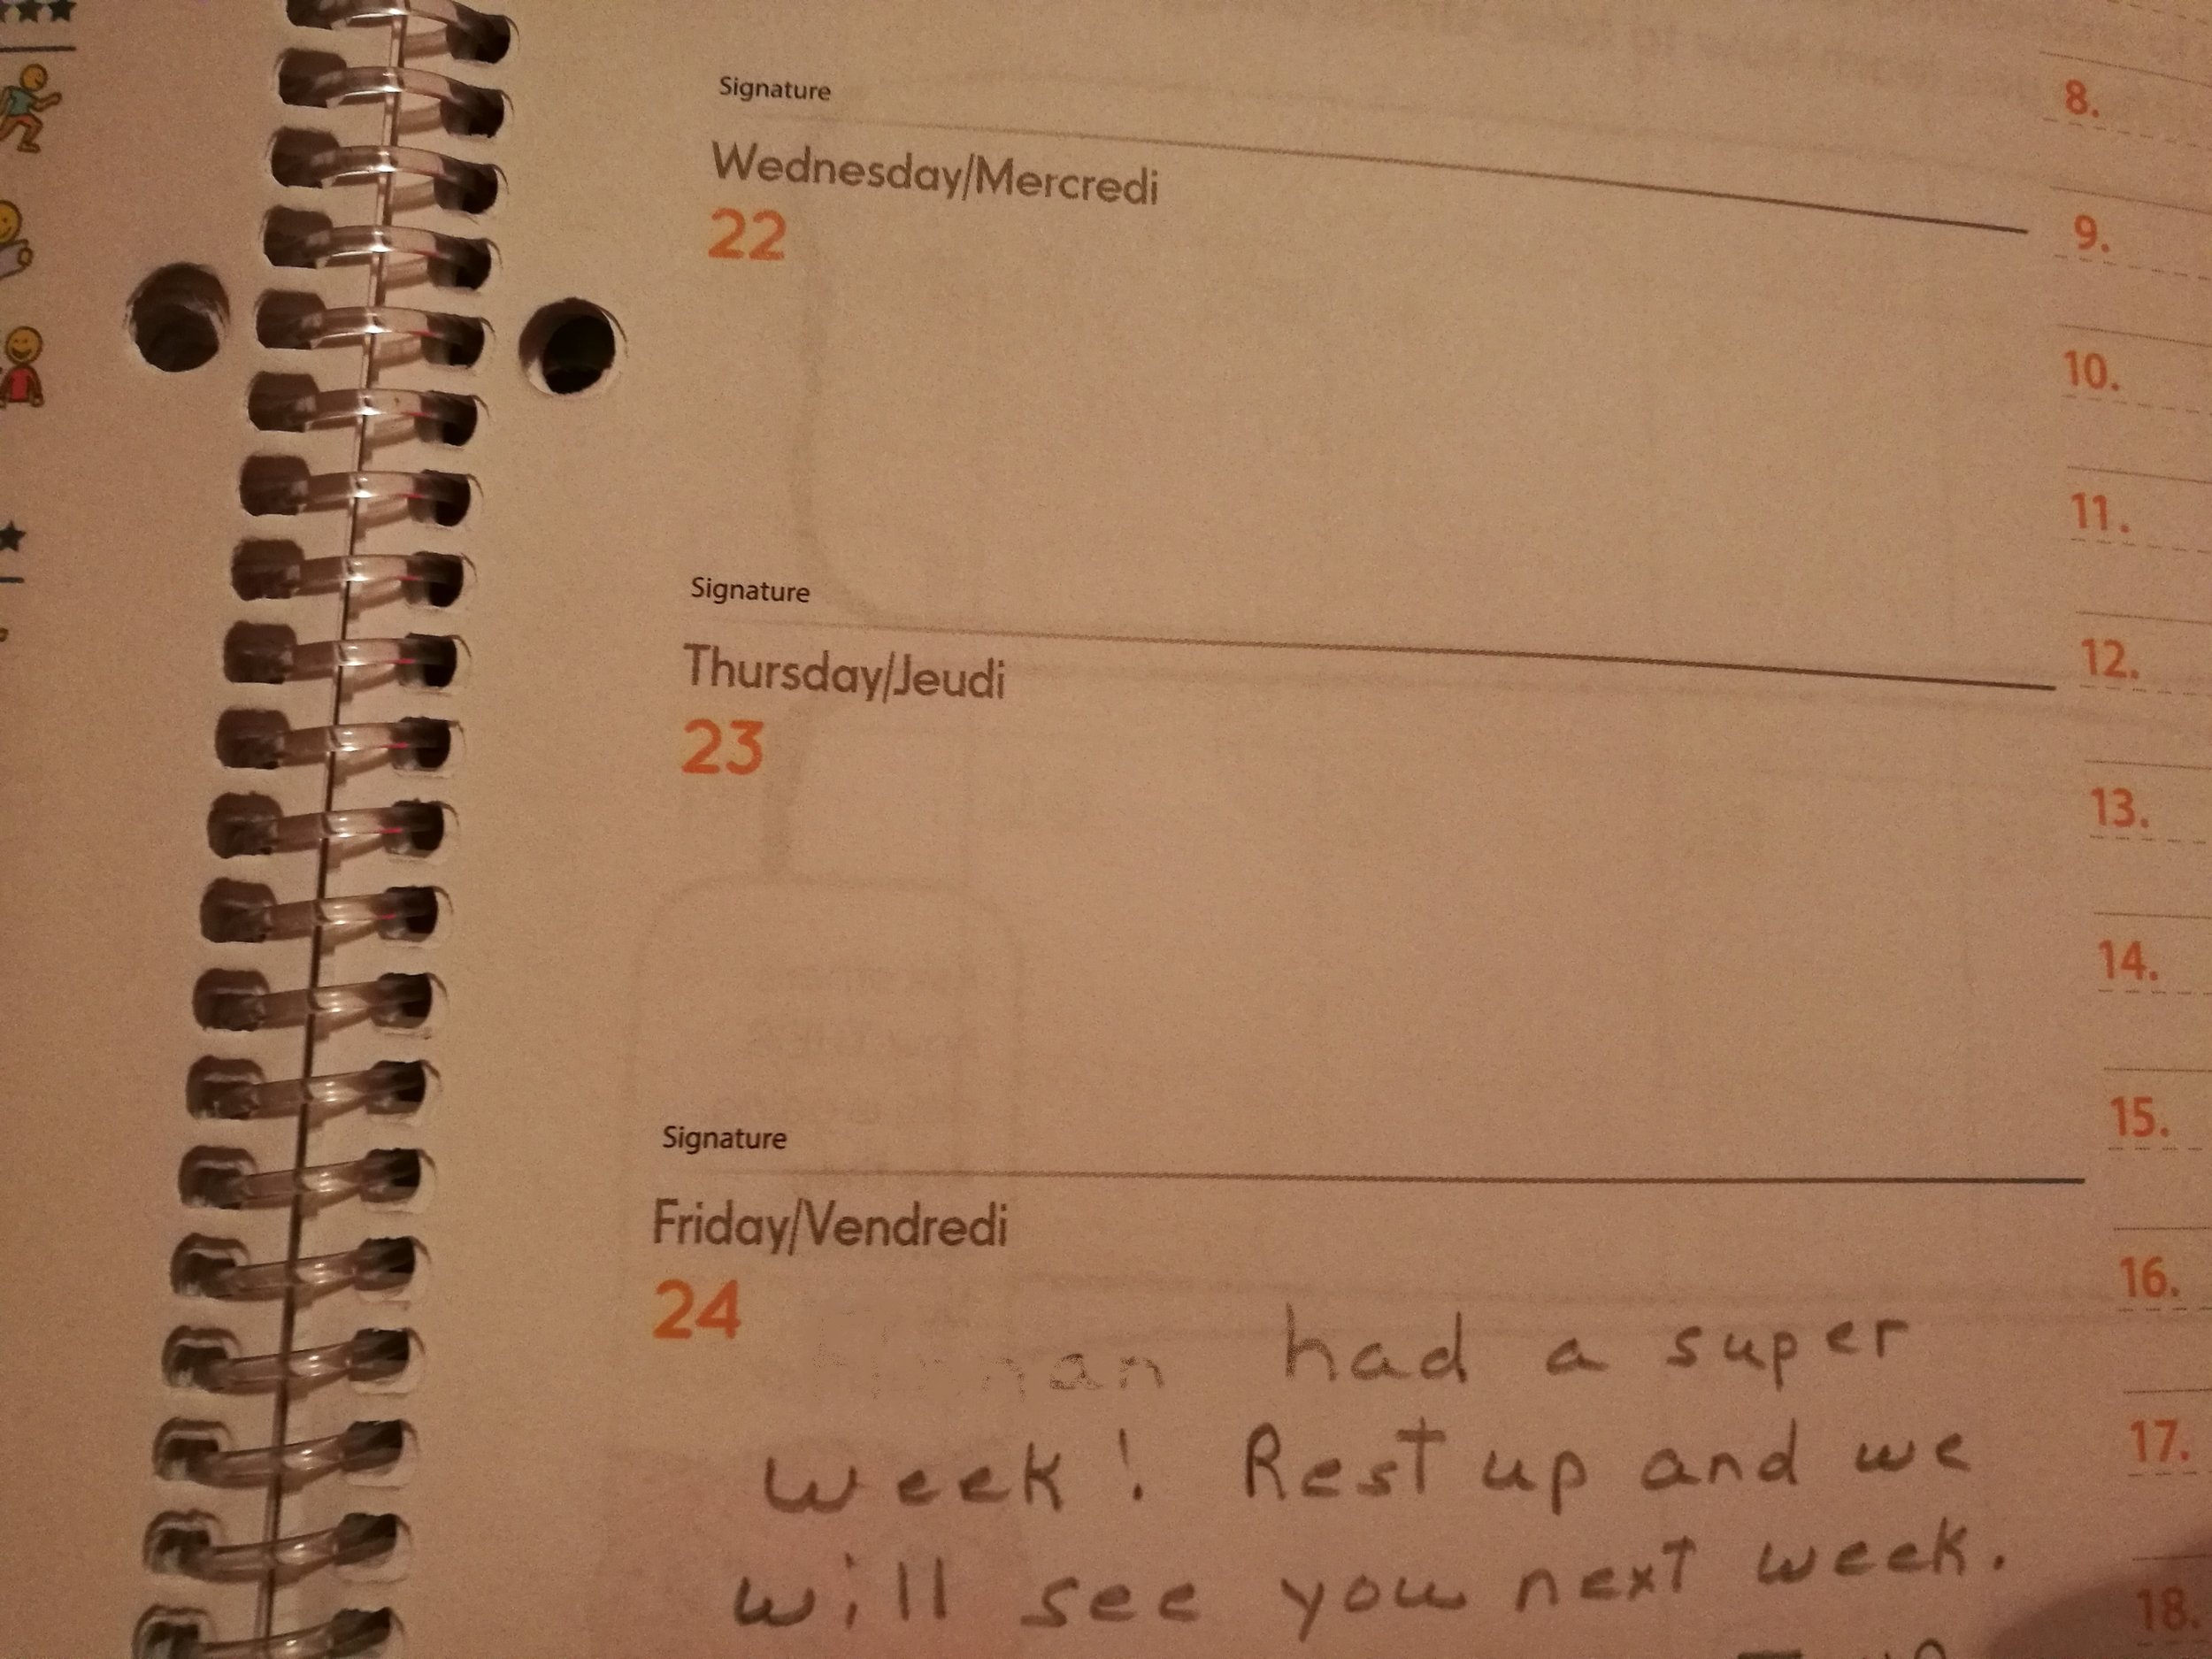 8.
Signature
Wednesday/Mercredi
22
9.
10.
11.
Signature
12.
Thursday/Jeudi
23
13.
14.
15.
Signature
Friday/Vendredi
24
16.
had a super
17.
week! Rest up and we
will see you next week.
18.